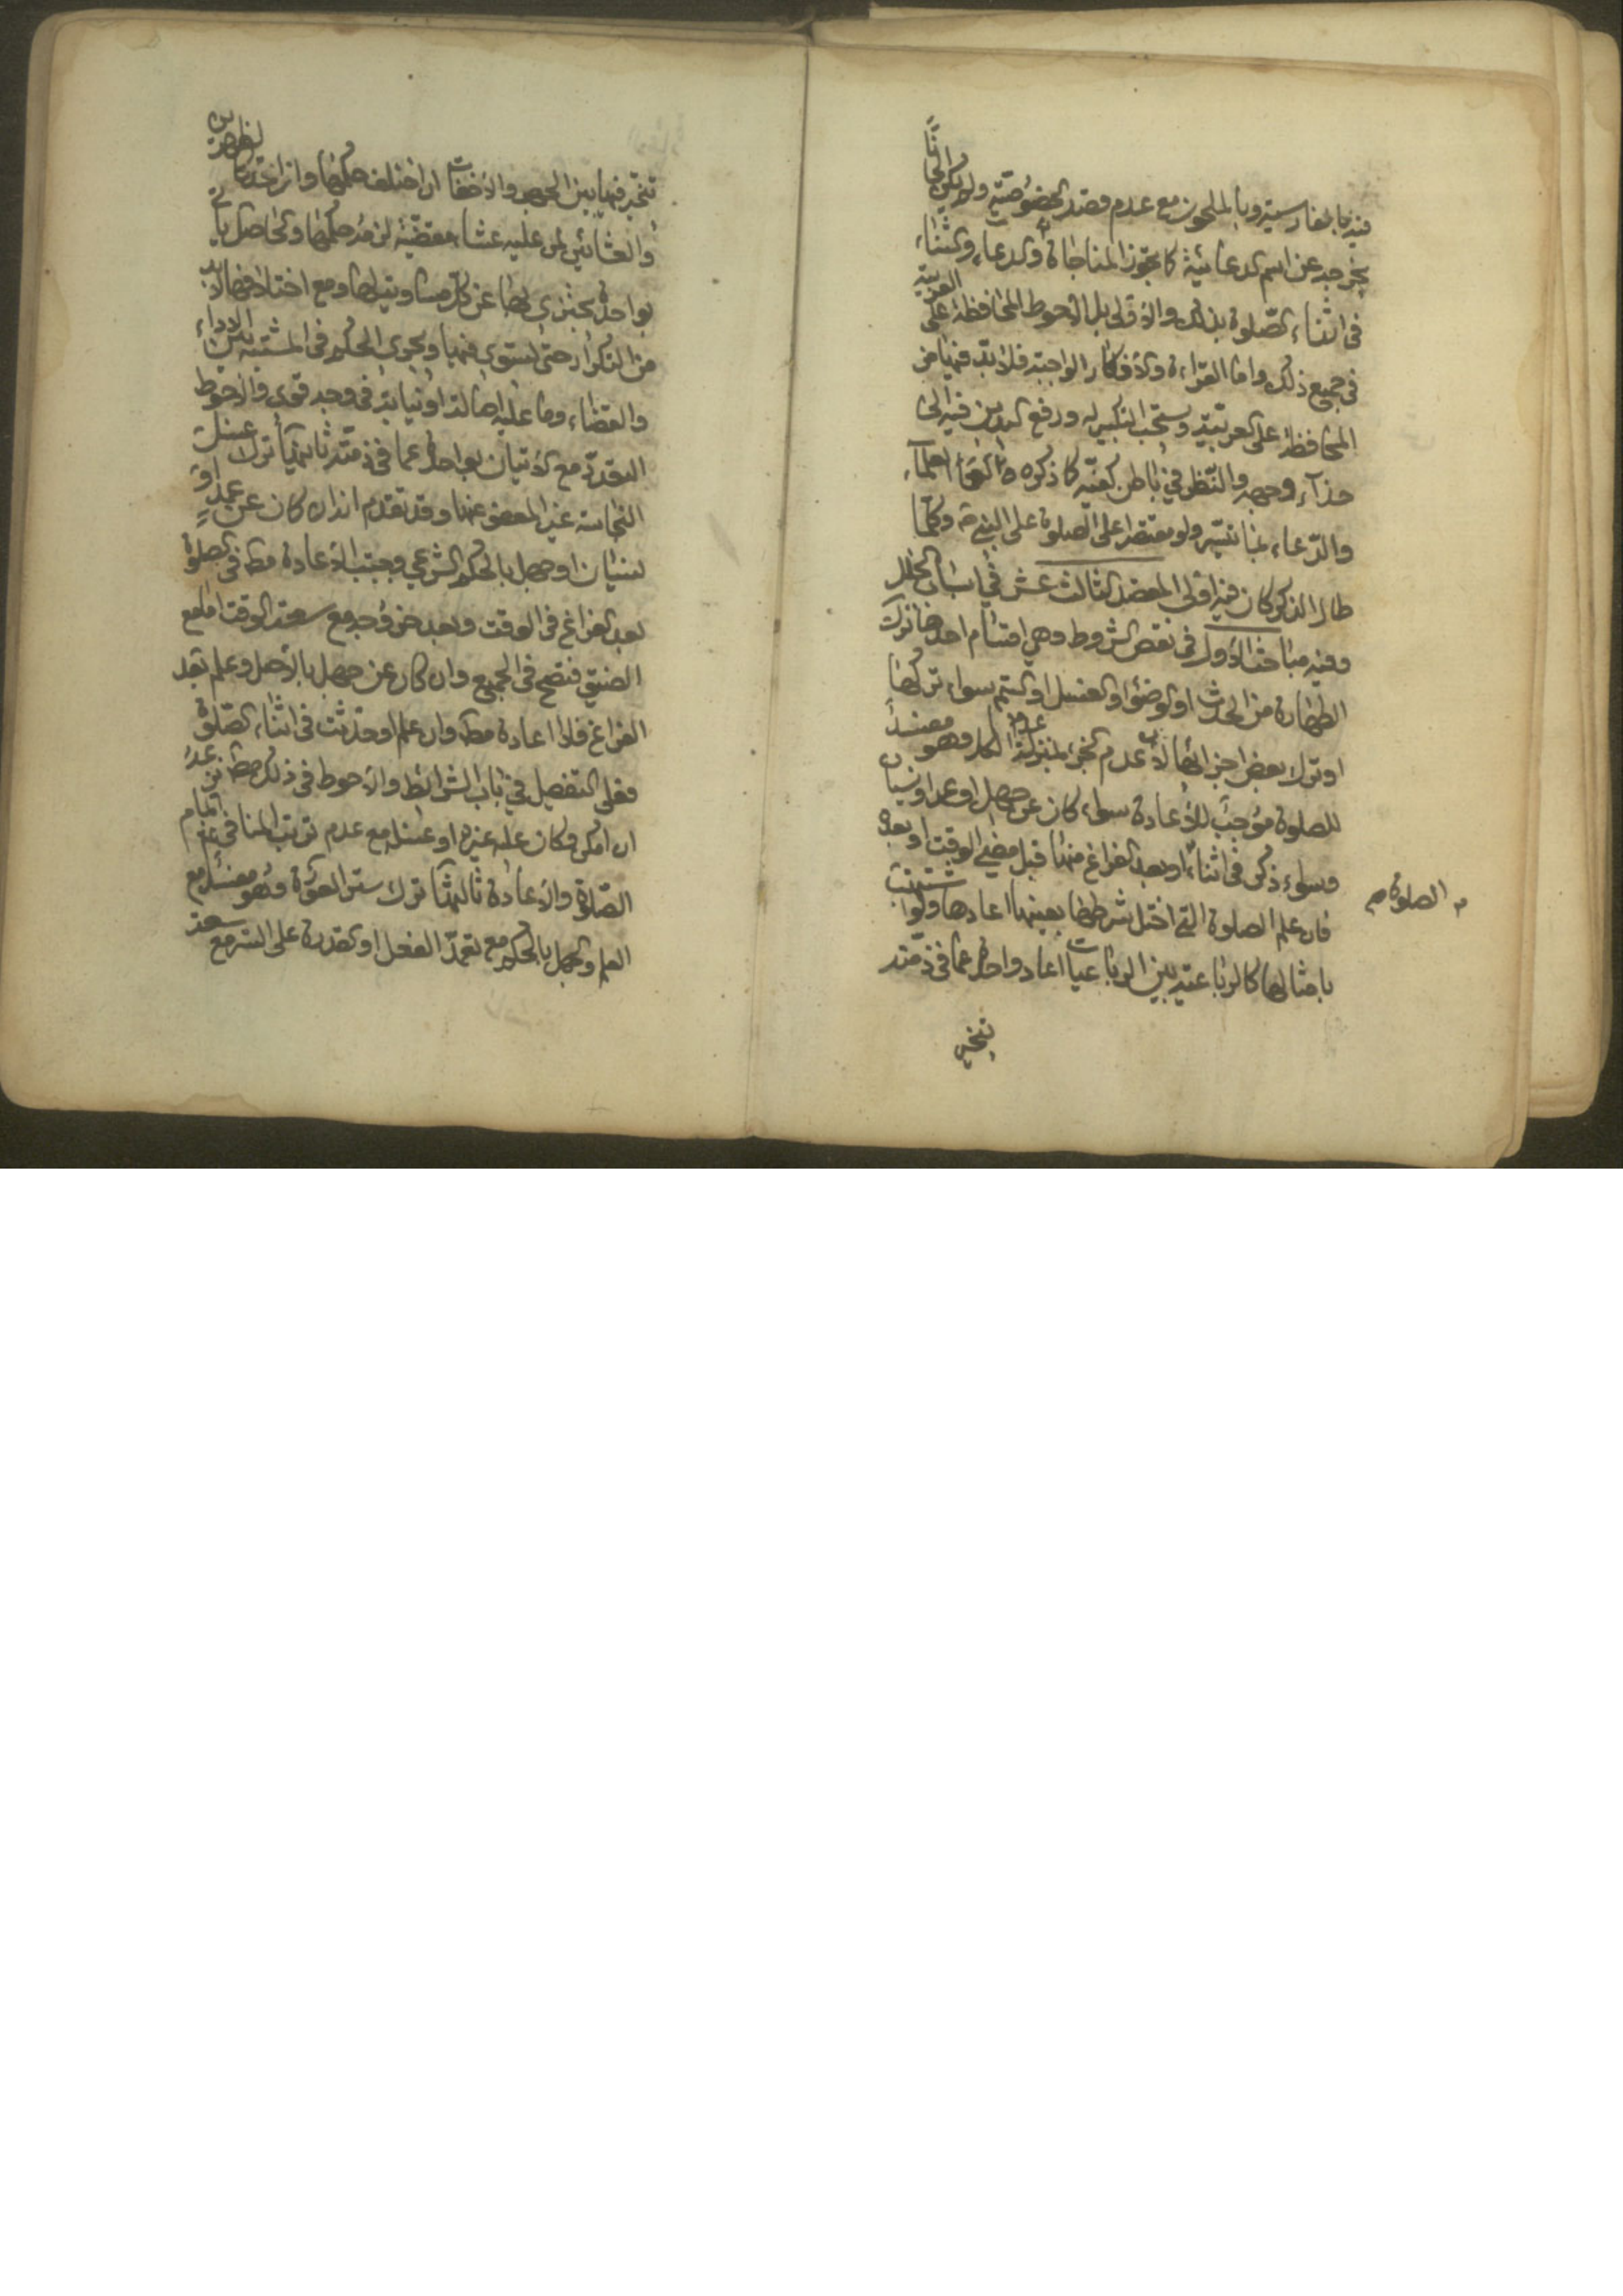 فيه بالفارسية وبالملحون مع عدم قصد الخصوصية ولم يكن لحنا
يخرجه عن اسم الدعائية كما يجوز المناجاة والدعاء والثناء
في اثناء الصلوة بذلك والاولى بل الاحوط المحافظة على العربية
في جميع ذلك واما القراءة والاذكار الواجبة فلا بد فيها من
المحافظة على العربية ويستحب التكبير له ورفع اليدين فيه الى
حذاء وجهه والنظر في باطن كفيه كما ذكره العلماء
والدعاء بما تيسر ولو مقتصرا على الصلوة على النبي ص وكلما
طال الذكر كان فيه اولى المقصد الثالث عشر في اسباب الخلل
وفيه مباحث الاول في نقص الشروط وهي اقسام احدها ترك
الطهارة من الحدث او الوضوء او الغسل او التيمم سواء تركها
او ترك بعض اجزائها لان عدم الجزء بمنزلة عدم الكل وهو مفسد
للصلوة موجب للاعادة سواء كان عن جهل او عمد او نسيان
وسواء ذكر في اثناء او بعد الفراغ منها قبل مضي الوقت او بعده
فان علم الصلوة التي اختل شرطها بعينها اعادها ولو اشتبهت
الصلوة
بامثالها كالرباعية بين الرباعيات اعاد واحدة عما في ذمته
يتخير
يتخير فيها بين الجهر والاخفات ان اختلف حكمها وان اتحد كالظهرين
والعشائين لمن عليه عشاء مقضية لزمه حكمها والحاصل يأتي
بواحدة يجتزي بها عن كل مساويتها ومع اختلافها لا بد
من التكرار حتى يستوي فيها ويجري الحكم في المشتبه بين الاداء
والقضاء وما عليه اصالة او نيابة في وجه قوي والاحوط
التعدد مع الاتيان بواحدة عما في ذمته ثانيها ترك غسل
النجاسة غير المعفو عنها وقد تقدم انه ان كان عن عمد او
نسيان او جهل بالحكم الشرعي وجبت الاعادة مط في الصلوة
بعد الفراغ في الوقت وبعد خروجه مع سعة الوقت اما مع
الضيق فتصح في الجميع وان كان عن جهل بالاصل وعلم بعد
الفراغ فلا اعادة مط وان علم او حدثت في اثناء الصلوة
فعلى التفصيل في باب الشرائط والاحوط في ذلك
ان امكن وكان عليه غيره او غسله مع عدم ترتب المنافي اتمام
الصلوة والاعادة ثالثها ترك ستر العورة وهو مفسد مع
العلم والجهل بالحكم مع تعمد الفعل او القدرة على الستر مع سعة